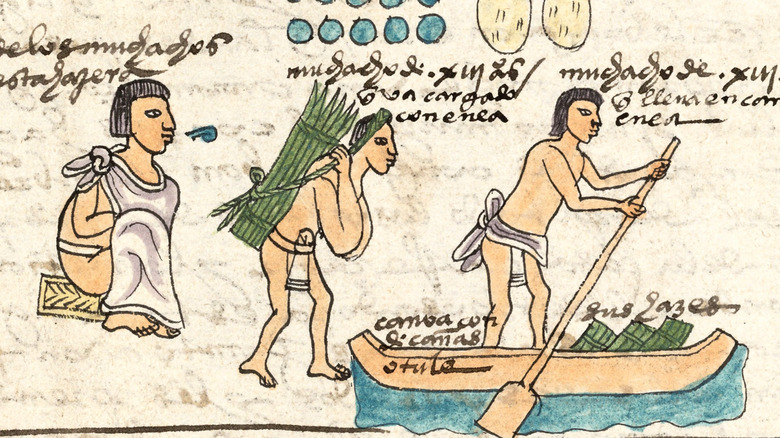 de los muchachos
muchacho de . xiij años /
q̃ va cargado
con enea
muchacho de . xiij
q̃ lleva en
enea
canoa con
de cañas
o tule
sus hazes